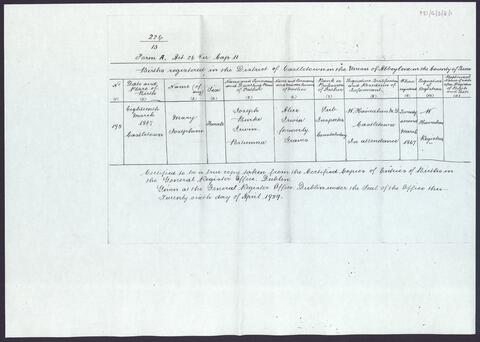 P31/2/3/8/1
224
13
Form A. Act 26 Vic Cap. 11
Births registered in the District of Castletown in the Union of Abbeyleix in the County of Queens
No Date and Place of Birth Name (if any) Sex Name and Surname and Dwelling Place of Father Name and Surname and Maiden Surname of Mother Rank or Profession of Father Signature, Qualification and Residence of Informant When registered Signature of Registrar
(1) (2) (3) (4) (5) (6) (7) (8) (9) (10) (11)
198 Eighteenth March 1867 Castletown Mary Josephine Female Joseph Irwin Alice Irwin formerly Graves Sub Inspector Constabulary Castletown In attendance Twenty March 1867 W Registrar
Certified to be a true copy taken from the Certified Copies of Entries of Births in
the General Register Office, Dublin.
Given at the General Register Office, Dublin under the Seal of the Office this
Twenty sixth day of April, 1929.